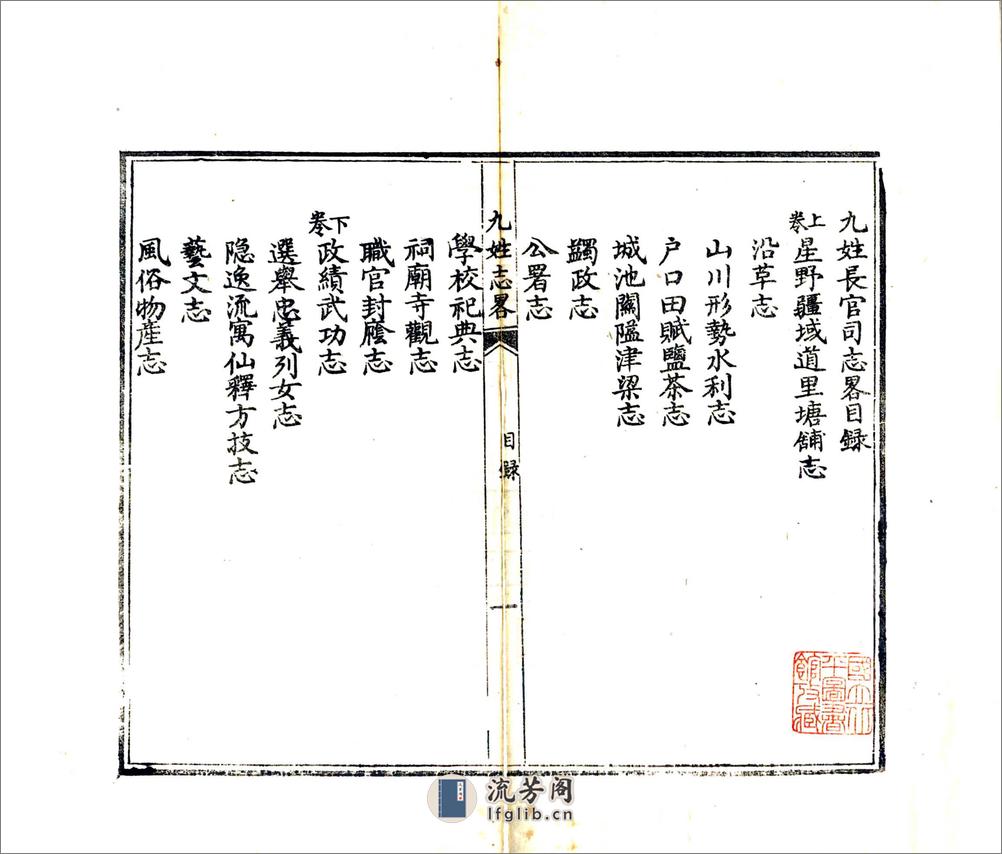 九姓長官司志畧目録
上卷 星野疆域道里塘鋪志
沿革志
山川形勢水利志
户口田賦鹽茶志
城池關隘津梁志
蠲政志
公署志
九姓志畧 目録 一
學校祀典志
祠廟寺觀志
職官封廕志
下卷 政績武功志
選舉忠義列女志
隐逸流寓仙釋方技志
藝文志
風俗物產志
國立北平圖書館收藏
流芳阁
lfglib.cn